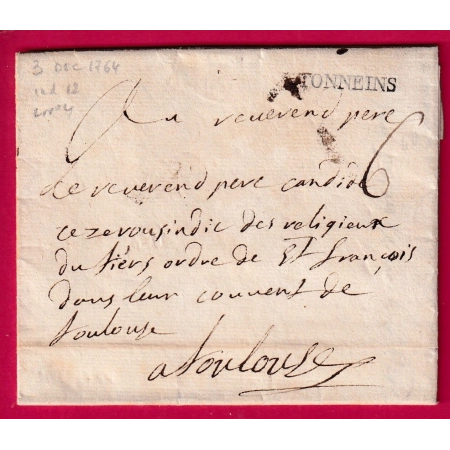 3 DEC 1764
ind 12
TONNEINS
Au reverend pere
6
le reverend pere candide
cezerou sindic des religieux
du tiers ordre de St françois
dans leur couvent de
toulouse
a toulouse